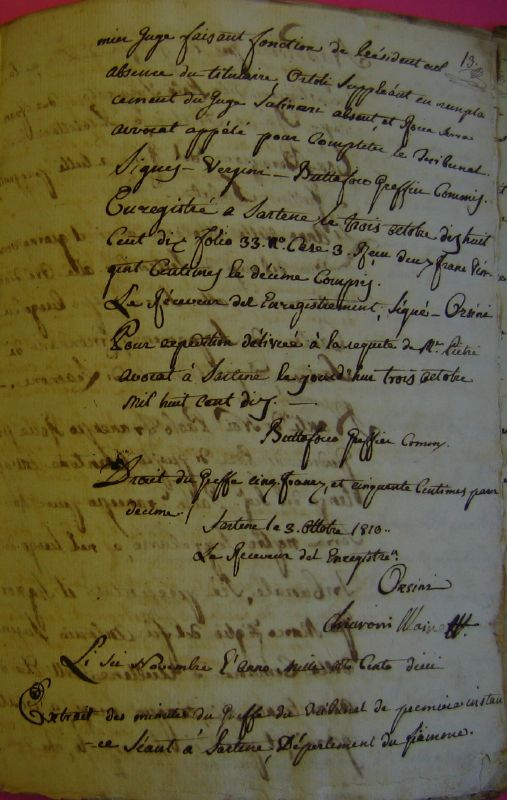 13.
mier Juge faisant fonction de Président en
absence du titulaire Ortoli Suppléant en rempla
cement du Juge absent et Rocca Serra
avvocat appélé pour completer le Tribunal.
Signés – Vergini – Buttafoco Greffier Commis.
Enregistré a Sartene le trois octobre dix huit
Cent dix folio 33. N.º Case 3. Reçu deux franc
gint Centimes le décime Compris.
Le Réceveur del Enregistrement, Signé – Orsini
Pour expedition délivrée à la requete de M.r Pietri
avocat à Sartene le jourd'hui trois octobre
Mil huit Cent dix. —
Buttafoco Greffier Comm.
Droit du Greffe cinq francs, et cinquante Centimes pour
decime.
Sartene le 3. Ottobre 1810..
Le Receveur del Enregistre.
Orsini
Li Sei Novembre L'anno Mille otto Cento dieci
Extrait des minutes du Greffe du Tribunal de premiere instan
-ce Séant à Sartene, Département du